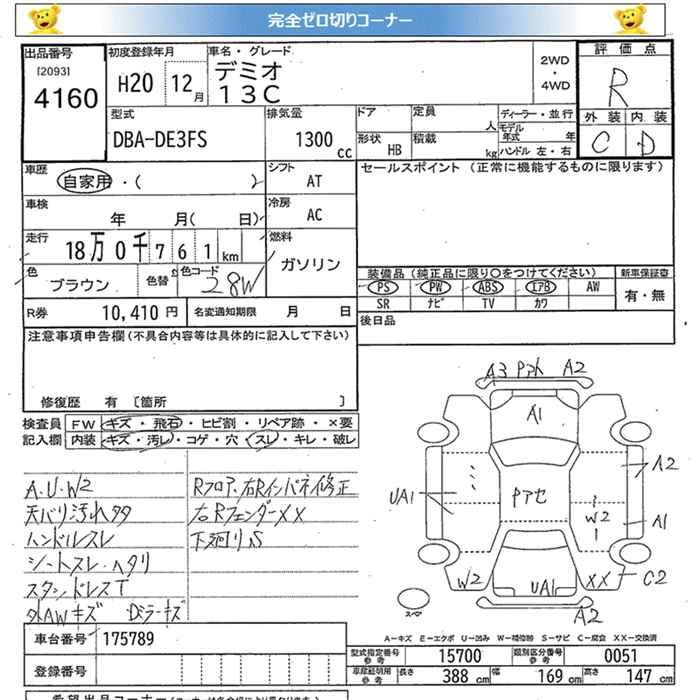 完全ゼロ切りコーナー
出品番号
[2093]
4160
初度登録年月
H20 12月
車名・グレード
デミオ
13C
2WD
・
4WD
評価点
R
外装 内装
C D
型式
DBA-DE3FS
排気量
1300 cc
ドア
定員
人
形状
HB
積載
kg
ディーラー・並行
モデル年式 年
ハンドル 左・右
車歴
自家用・( )
シフト
AT
車検
年 月( 日)
冷房
AC
走行
18万0千761km
燃料
ガソリン
色
ブラウン
色替
色コード
28W
セールスポイント (正常に機能するものに限ります)
装備品(純正品に限り○をつけてください)
新車保証書
PS PW ABS エアB AW
SR ナビ TV カワ
有・無
R券 10,410円
名変通知期限 月 日
後日品
注意事項申告欄(不具合内容等は具体的に記入して下さい)
修復歴 有 [箇所 ]
検査員記入欄
FW キズ・飛石・ヒビ割・リペア跡・×要
内装 キズ・汚レ・コゲ・穴・スレ・キレ・破レ
A.U.W2
天バリ汚れタタ
ハンドルスレ
シートスレ・ヘタリ
スタンドレスT
外AWキズ Dミラーキズ
Rフロア、右Rインパネ修正
右RフェンダーXX
下廻りS
A3 Pアト A2
A1
A2
UA1
Pアセ
W2
A1
W2
UA1
XX
C2
A2
スペア
A-キズ E-エクボ U-凹み W-補修跡 S-サビ C-腐食 XX-交換済
車台番号 175789
登録番号
型式指定番号参考 15700
類別区分番号参考 0051
車庫証明用参考 長さ 388cm 幅 169cm 高さ 147cm
希望出品コーナー